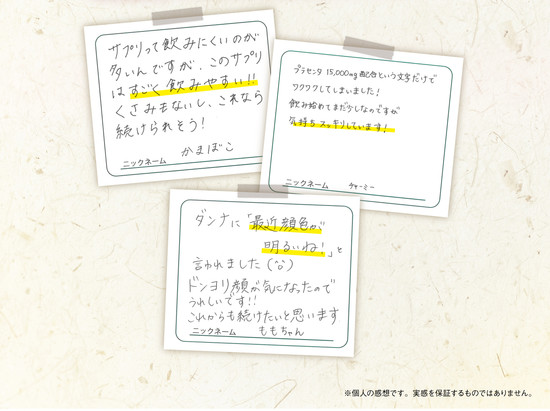 サプリって飲みにくいのが
多いんですが、このサプリ
はすごく飲みやすい!!
くさみもないし、これなら
続けられそう!
ニックネーム かまぼこ
プラセンタ 15,000mg配合という文字だけで
ワクワクしてしまいました!
飲み始めてまだ少しなのですが
気持ちスッキリしています!
ニックネーム チャーミー
ダンナに「最近顔色が
明るいね!」と
言われました(^o^)
ドンヨリ顔が気になったので
うれしいです!!
これからも続けたいと思います
ニックネーム ももちゃん
※個人の感想です。実感を保証するものではありません。